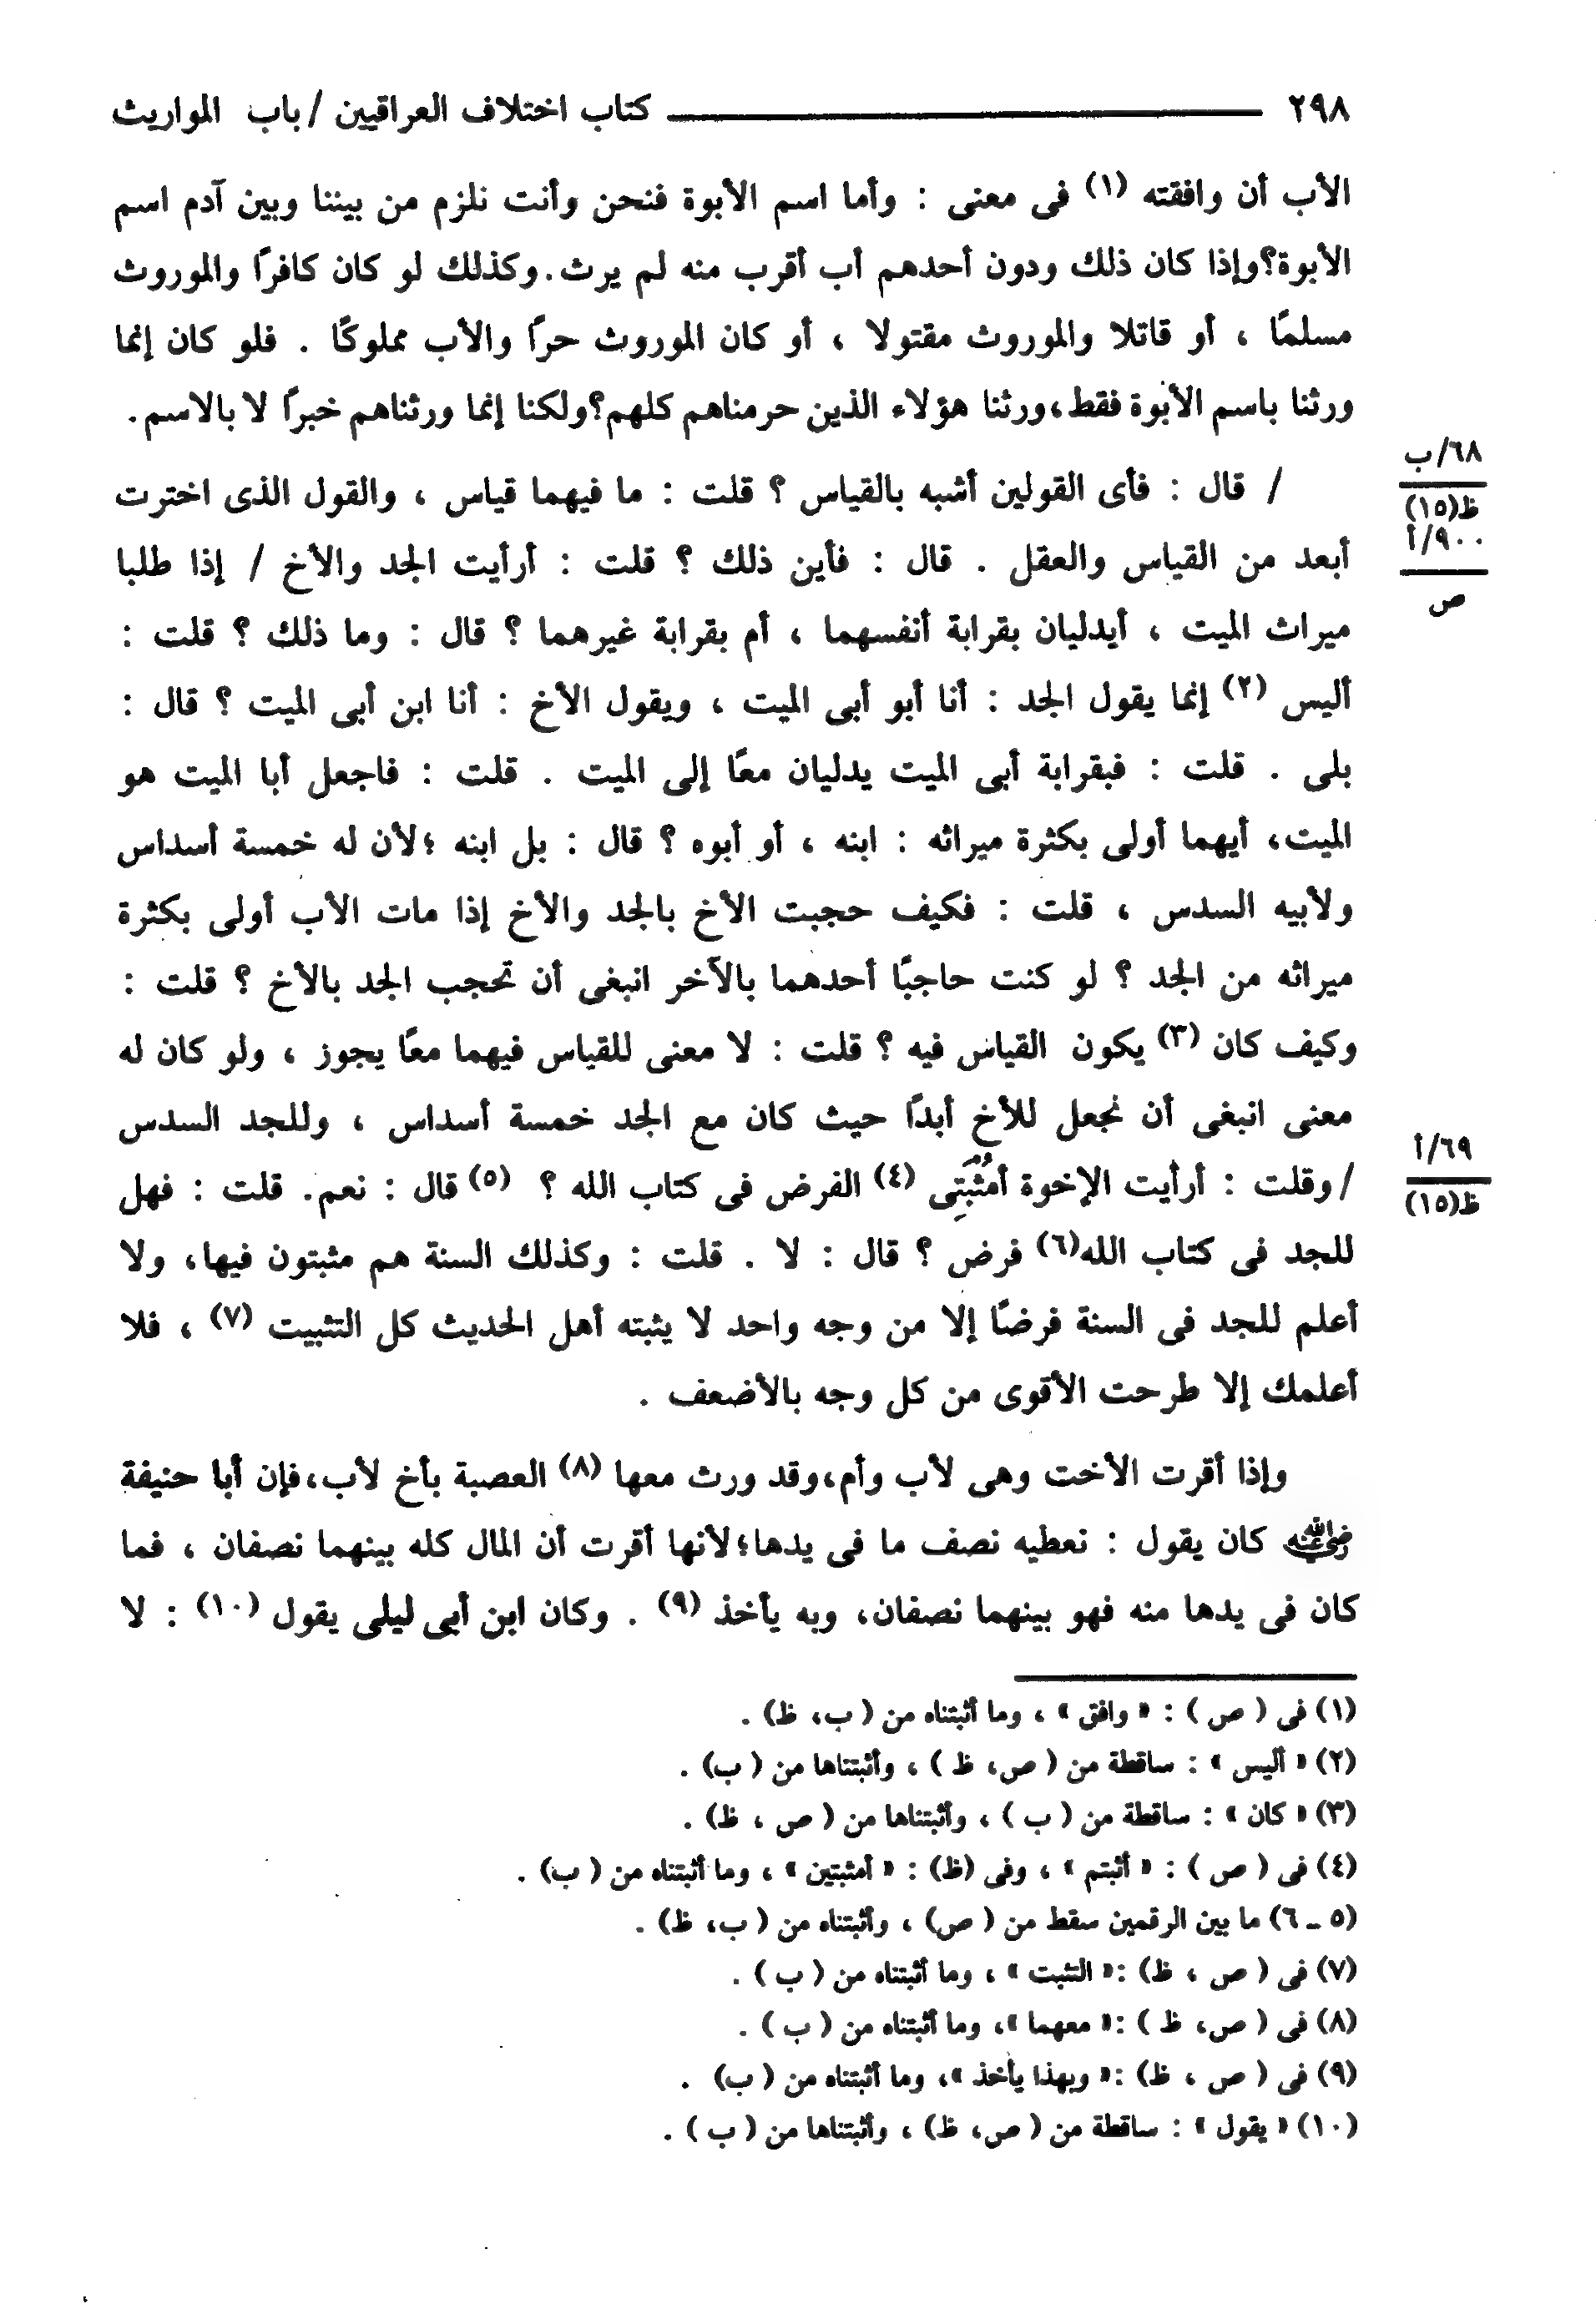 ٢٩٨ ــــــــ كتاب اختلاف العراقيين / باب المواريث
الأب أن وافقته (١) فى معنى : وأما اسم الأبوة فنحن وأنت نلزم من بيننا وبين آدم اسم
الأبوة؟وإذا كان ذلك ودون أحدهم أب أقرب منه لم يرث.وكذلك لو كان كافرًا والموروث
مسلمًا ، أو قاتلا والموروث مقتولا ، أو كان الموروث حرًا والأب مملوكًا . فلو كان إنما
ورثنا باسم الأبوة فقط،ورثنا هؤلاء الذين حرمناهم كلهم؟ولكنا إنما ورثناهم خبرًا لا بالاسم.
٦٨/ب
ظ(١٥)
/ قال : فأى القولين أشبه بالقياس ؟ قلت : ما فيهما قياس ، والقول الذى اخترت
٩٠٠/أ
ص
أبعد من القياس والعقل . قال : فأين ذلك ؟ قلت : أرأيت الجد والأخ / إذا طلبا
ميراث الميت ، أيدليان بقرابة أنفسهما ، أم بقرابة غيرهما ؟ قال : وما ذلك ؟ قلت :
أليس (٢) إنما يقول الجد : أنا أبو أبى الميت ، ويقول الأخ : أنا ابن أبى الميت ؟ قال :
بلى . قلت : فبقرابة أبى الميت يدليان معًا إلى الميت . قلت : فاجعل أبا الميت هو
الميت، أيهما أولى بكثرة ميراثه : ابنه ، أو أبوه ؟ قال : بل ابنه ؛لأن له خمسة أسداس
ولأبيه السدس ، قلت : فكيف حجبت الأخ بالجد والأخ إذا مات الأب أولى بكثرة
ميراثه من الجد ؟ لو كنت حاجبًا أحدهما بالآخر انبغى أن تحجب الجد بالأخ ؟ قلت :
وكيف كان (٣) يكون القياس فيه ؟ قلت : لا معنى للقياس فيهما معًا يجوز ، ولو كان له
معنى انبغى أن نجعل للأخ أبدًا حيث كان مع الجد خمسة أسداس ، وللجد السدس
٦٩/أ
ظ(١٥)
/ وقلت : أرأيت الإخوة أمُثْبَتِى (٤) الفرض فى كتاب الله ؟ (٥) قال : نعم. قلت : فهل
للجد فى كتاب الله(٦) فرض ؟ قال : لا . قلت : وكذلك السنة هم مثبتون فيها، ولا
أعلم للجد فى السنة فرضًا إلا من وجه واحد لا يثبته أهل الحديث كل التثبيت (٧) ، فلا
أعلمك إلا طرحت الأقوى من كل وجه بالأضعف .
وإذا أقرت الأخت وهى لأب وأم،وقد ورث معها (٨) العصبة بأخ لأب،فإن أبا حنيفة
رضي الله عنه كان يقول : نعطيه نصف ما فى يدها؛لأنها أقرت أن المال كله بينهما نصفان ، فما
كان فى يدها منه فهو بينهما نصفان، وبه يأخذ (٩) . وكان ابن أبى ليلى يقول (١٠) : لا
(١) فى ( ص ) : « وافق » ، وما أثبتناه من ( ب، ظ) .
(٢) « أليس » : ساقطة من ( ص، ظ ) ، وأثبتناها من ( ب) .
(٣) « كان » : ساقطة من ( ب ) ، وأثبتناها من ( ص ، ظ) .
(٤) فى ( ص ) : « أثبتم » ، وفى (ظ) : « أمثبتين » ، وما أثبتناه من ( ب) .
(٥ ــ ٦) ما بين الرقمين سقط من ( ص) ، وأثبتناه من ( ب، ظ) .
(٧) فى ( ص ، ظ) :« التثبت » ، وما أثبتناه من ( ب ) .
(٨) فى ( ص، ظ ) :« معهما »، وما أثبتناه من ( ب ) .
(٩) فى ( ص ، ظ) :« وبهذا يأخذ »، وما أثبتناه من ( ب) .
(١٠) « يقول » : ساقطة من ( ص، ظ) ، وأثبتناها من ( ب ) .